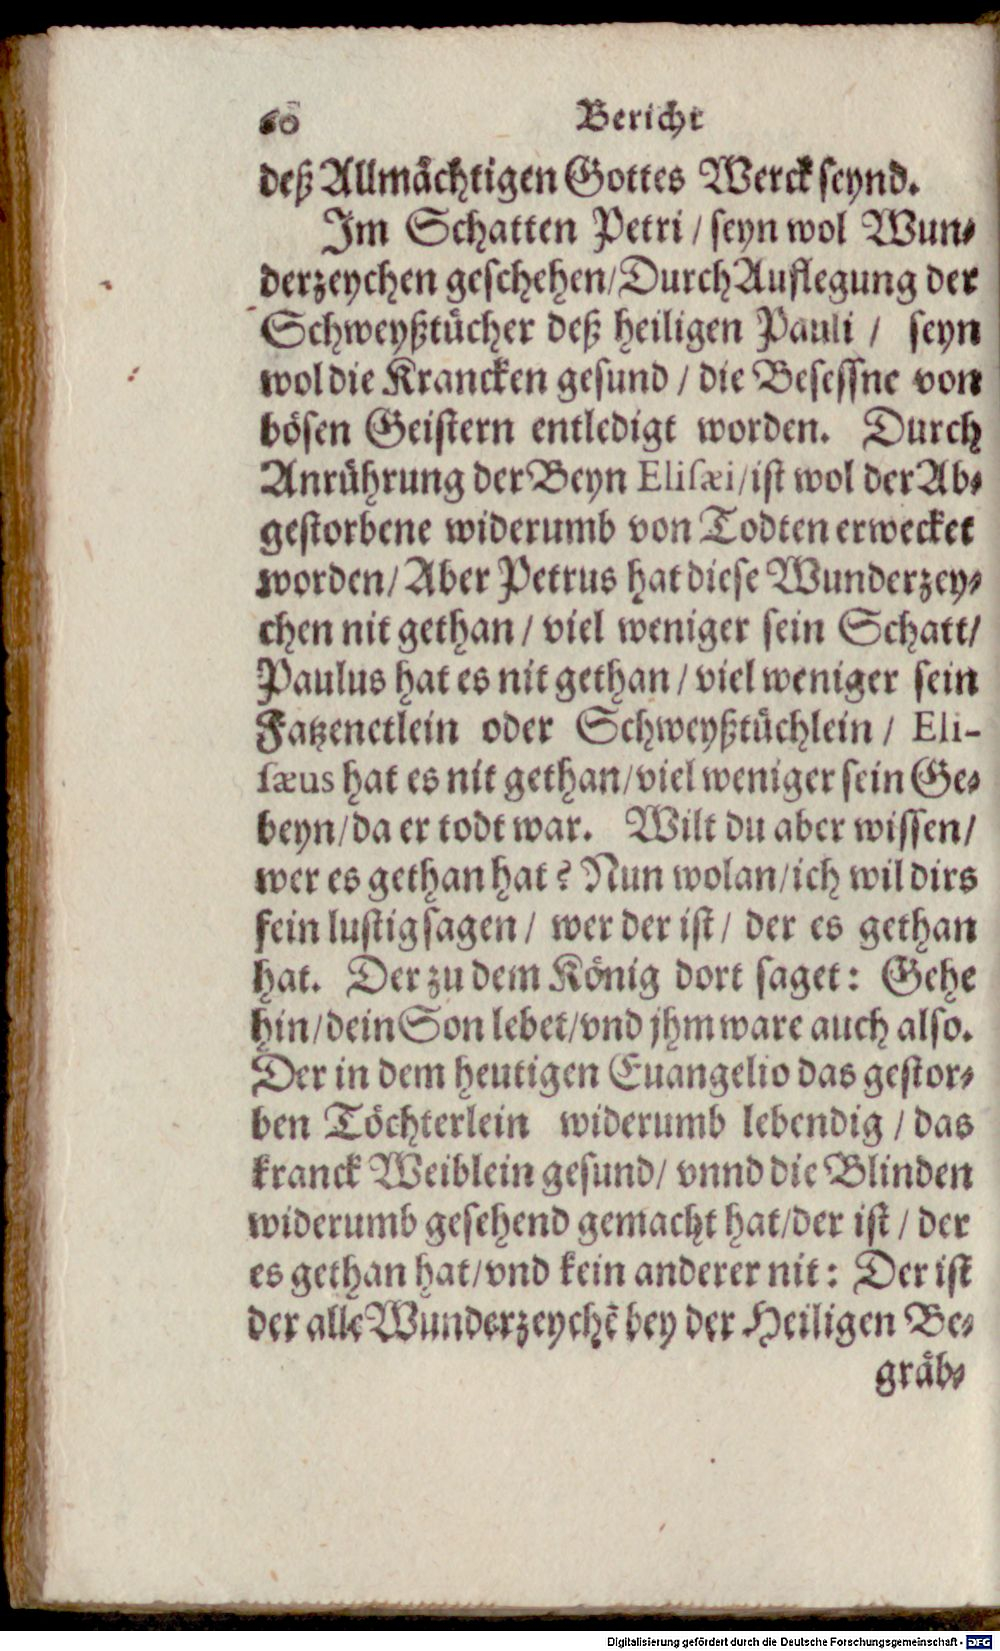 60 Bericht
deß Allmächtigen Gottes Werck seynd.
Im Schatten Petri / seyn wol Wun-
derzeychen geschehen/ Durch Auflegung der
Schweyßtücher deß heiligen Pauli / seyn
wol die Krancken gesund / die Besessne von
bösen Geistern entledigt worden. Durch
Anrührung der Beyn Elisæi/ ist wol der Ab-
gestorbene widerumb von Todten erwecket
worden/ Aber Petrus hat diese Wunderzey-
chen nit gethan / viel weniger sein Schatt/
Paulus hat es nit gethan / viel weniger sein
Fatzenetlein oder Schweyßtüchlein / Eli-
sæus hat es nit gethan/ viel weniger sein Ge-
beyn/ da er todt war. Wilt du aber wissen/
wer es gethan hat? Nun wolan/ ich wil dirs
fein lustig sagen / wer der ist / der es gethan
hat. Der zu dem König dort saget: Gehe
hin/ dein Son lebet/ vnd jhm ware auch also.
Der in dem heutigen Euangelio das gestor-
ben Töchterlein widerumb lebendig / das
kranck Weiblein gesund/ vnnd die Blinden
widerumb gesehend gemacht hat/ der ist / der
es gethan hat/ vnd kein anderer nit: Der ist
der alle Wunderzeychẽ bey der Heiligen Be-
gräb-
Digitalisierung gefördert durch die Deutsche Forschungsgemeinschaft - DFG